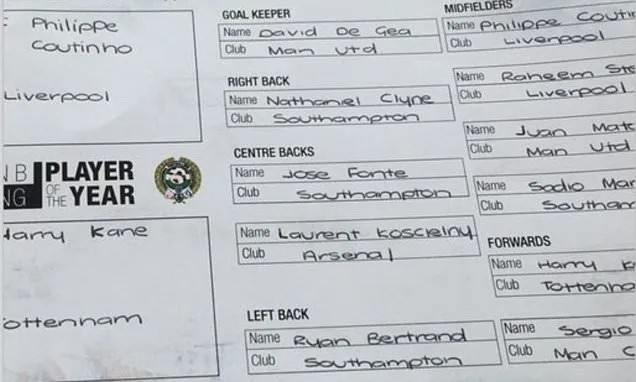 Philippe
Coutinho
Liverpool
PLAYER
OF THE YEAR
Harry Kane
GOAL KEEPER
Name David De Gea
Club Man Utd
RIGHT BACK
Name Nathaniel Clyne
Club Southampton
CENTRE BACKS
Name Jose Fonte
Club Southampton
Name Laurent Koscielny
Club Arsenal
LEFT BACK
Name Ryan Bertrand
Club Southampton
MIDFIELDERS
Name Philippe Coutin
Club Liverpool
Name Raheem Ste
Club Liverpool
Name Juan Mat
Club Man Utd
Name Sadio Man
Club Southam
FORWARDS
Name Harry K
Club Tottenh
Name Sergio
Club Man C